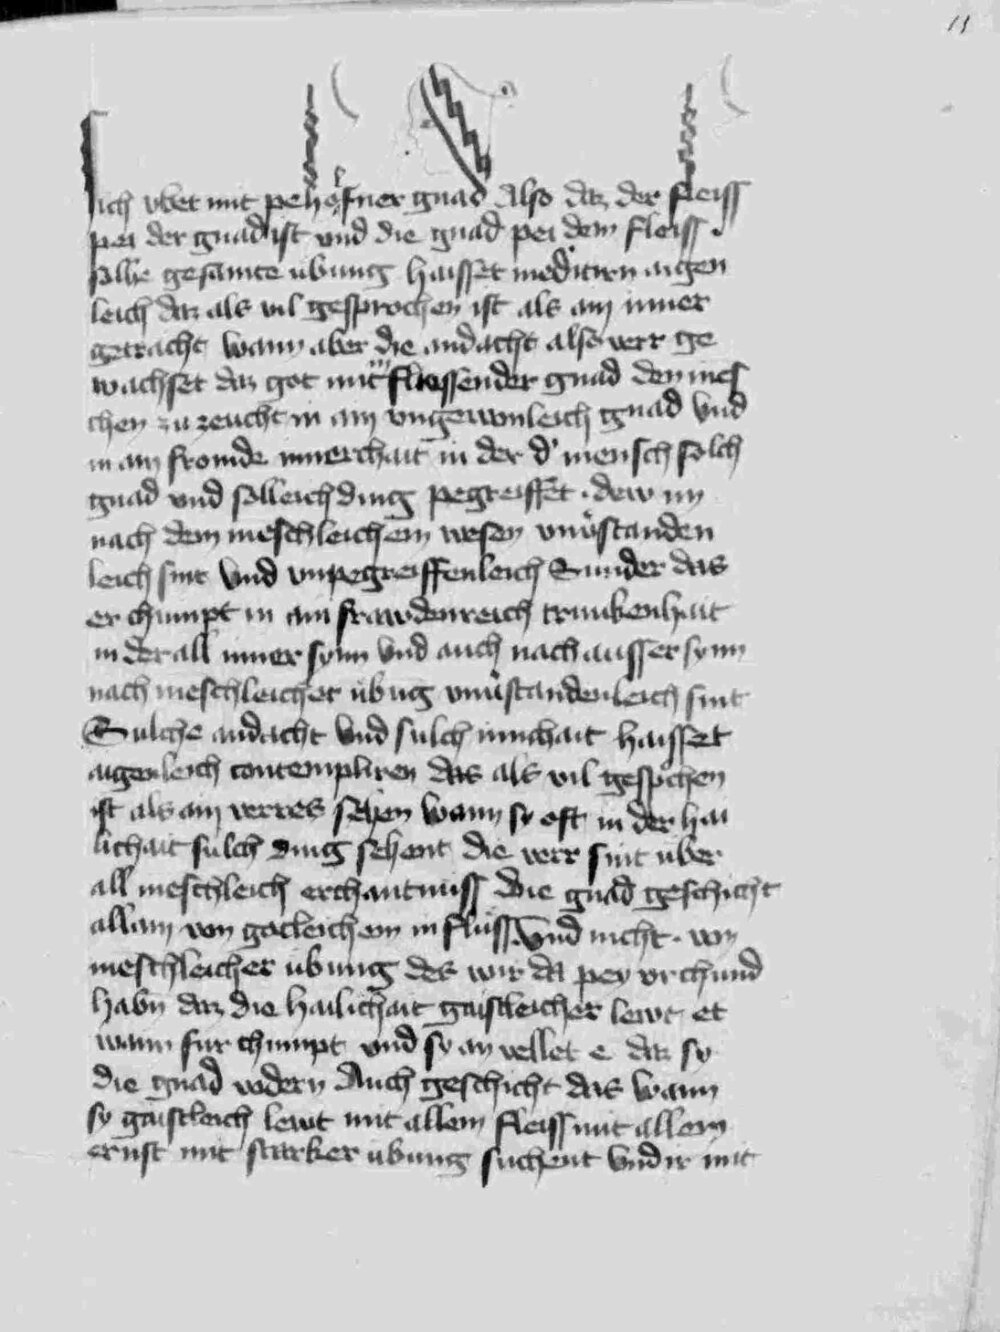 11
sich vbet mit peholfner gnad Also daz der fleiss
pei der gnad ist vnd die gnad pei dem fleiss
sölhe gesamte ubung haisset meditirn aigen
leich daz als vil gesprochen ist als ain inner
getracht wann aber die andacht also verr ge
wachset daz got mit fliessender gnad den mes
chen zu zeucht in ain vngewonleich gnad vnd
in ain fromde innerchait in der d' mensch solch
gnad vnd solleich ding pegreiffet · dew im
nach dem meschleichem wesen vnuostanden
leich sint vnd vnpegreiffenleich Sunder das
er chumpt in ain frawdenreich trunkenhait
in der all inner synn vnd auch nach ausser synn
nach meschleicher ubug vnuostandenleich sint
Sulche andacht vnd sulch innchait haisset
aigenleich contempliren das als vil gespchen
ist als ain verres sehen wann sy oft in der hai
lichait sulch ding sehent die verr sint uber
all meschleich erchantnuss Die gnad geschicht
allain von gotleichem in fluss vnd nicht · von
meschleicher ubung des wir da pey vrchund
habn daz die hailichait gaistleicher lewt et
wann fur chumpt vnd sy an vellet e daz sy
die gnad vodern Auch geschicht das wann
sy gaistleich lewt mit allem fleiss mit allem
ernst mit starker ubung suchent vnd ir mit